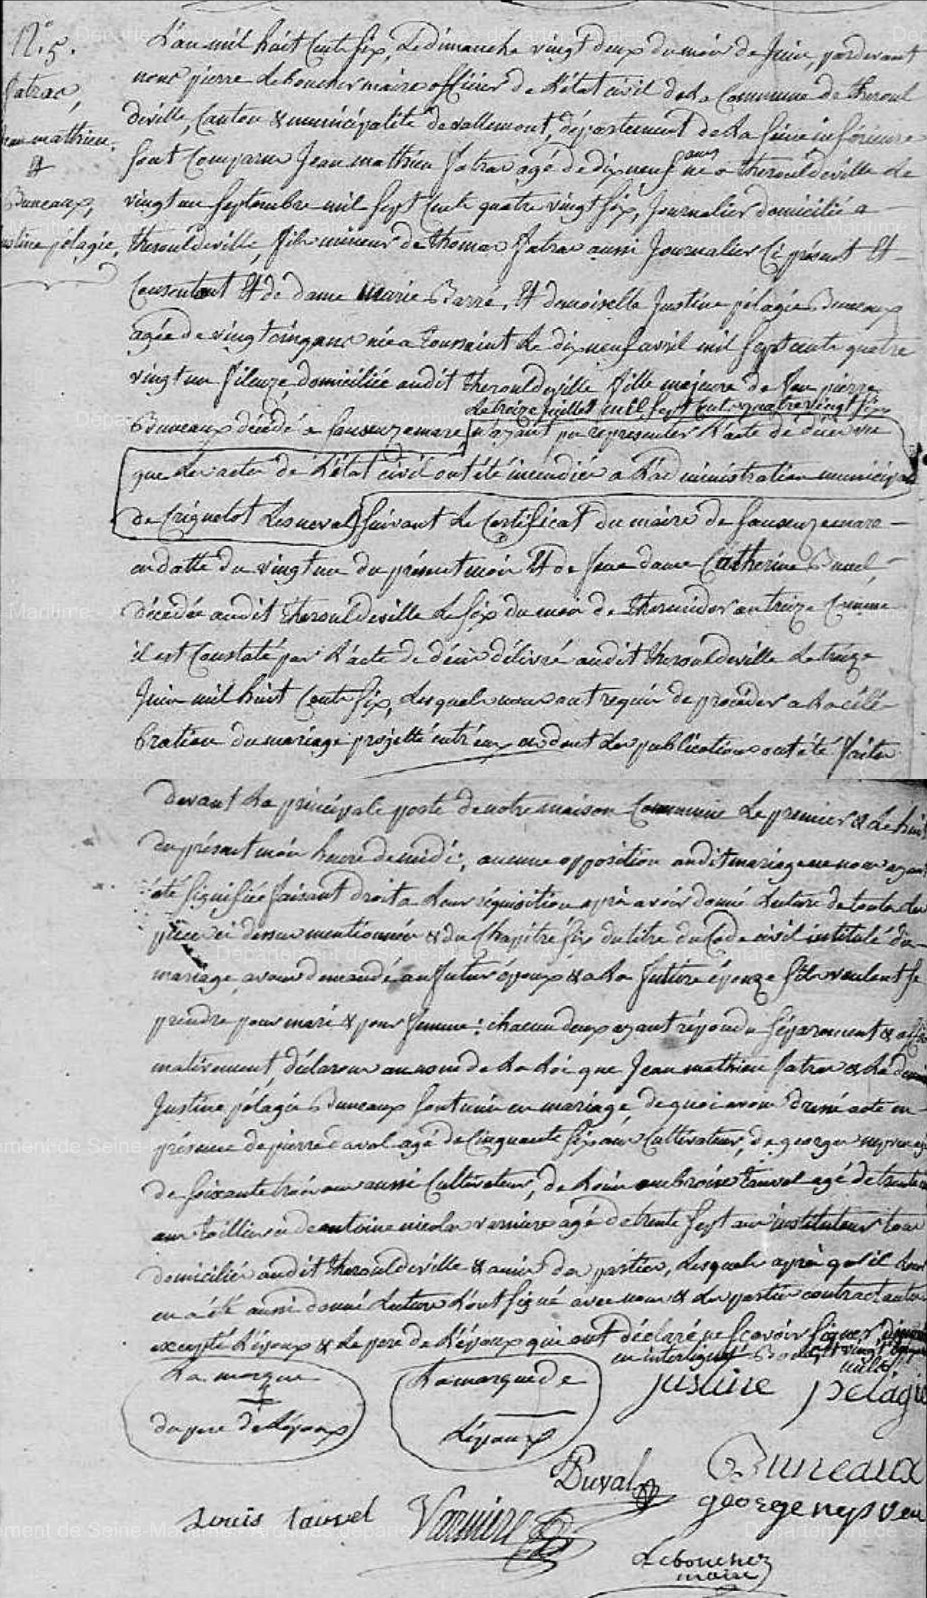 N°. 5.
Patrac,
Jean mathieu.
&
Buneaux,
Justine pélagie,
L'an mil huit Cent six, Le dimanche vingt deux du mois de Juin, pardevant
nous pierre Leboucher maire officier de L'état civil de La Commune de theroul
deville, Canton & municipalité de vallemont, département de La seine inférieure
sont Comparus Jean mathieu Patrac agé de dix neuf ans né a therouldeville Le
vingt un septembre mil sept Cents quatre vingt six, Journalier domicilié a
therouldeville, fils mineur de thomas Patrac aussi Journalier Ci présent Et
Consentant Et de dame Marie Barré, Et demoiselle Justine pélagie Buneaux
agée de vingt cinq ans née a toussaint Le dix neuf avril mil sept cents quatre
vingt un fileuze, domiciliée audit therouldeville fille majeure de feu pierre
Le treize juillet mil sept Cent quatre vingt six
Buneaux décédé a sauseuzemare, n'ayant pu représenter L'acte de décès vu
que Les actes de L'état civil ont été incendiés a L'administration municipale
de Criquetot Lesneval suivant Le Certificat du maire de sauseuzemare
en datte du vingt un du présent mois Et de feue dame Catherine Buzel,
décédée audit therouldeville Le six du mois de thermidor an treize Comme
il est Constaté par L'acte de décès délivré audit therouldeville Le treize
Juin mil huit Cents six, Lesquels nous ont requis de procéder a La célé-
bration du mariage projetté entr'eux et dont Les publications ont été faites
devant La principale porte de notre maison Commune Le premier & Le huit
du présent mois heure de midi, aucune opposition audit mariage ne nous ayant
été signifiée faisant droit a Leur réquisition après avoir donné Lecture de toutes Les
pièces ci dessus mentionnées & du Chapitre six du titre du Code civil intitulé du
mariage, avons demandé au futur époux & a La future épouze s'ils veulent se
prendre pour mari & pour femme: chacun d'eux ayant répondu séparément & affir
mativement, déclarons au nom de La Loi que Jean mathieu Patrac & La demoi
Justine pélagie Buneaux sont unis en mariage de quoi avons dressé acte en
présence de pierre duval agé de Cinquante six ans Cultivateur, de george neyrveu agé
de soixante trois ans aussi Cultivateur, de Louis ambroise tauvel agé de trente
ans taillieur & de antoine nicolas varniere agé de trente sept ans instituteur tous
domiciliés audit therouldeville & amis des parties, Lesquels après qu'il Leur
en a été aussi donné Lecture L'ont signé avec nous & Les parties contractantes
excepté L'époux & Le pere de L'époux qui ont déclaré ne sçavoir signer,
en interligne
nuls
La marque
du pere de L'époux
La marque de
L'époux
justine pelagie
Buneaux
Duval
george neyrveu
Louis tauvel
Varniere
Leboucher
maire